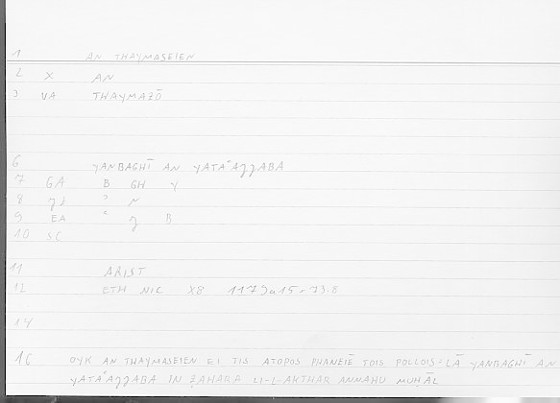 1 AN THAYMASEIEN
2 X AN
3 VA THAYMAZŌ
6 YANBAGHĪ AN YATA'AJJABA
7 GA B GH Y
8 ' N
9 EA J B
10 SC
11 ARIST
12 ETH NIC X8
14
16 OYK AN THAYMASEIEN EI TIS ATOPOS PHANEIĒ TOIS POLLOIS = LĀ YANBAGHĪ AN
YATA'AJJABA IN ẒAHARA LI-L-AKTHAR ANNAHU MUḤĀL